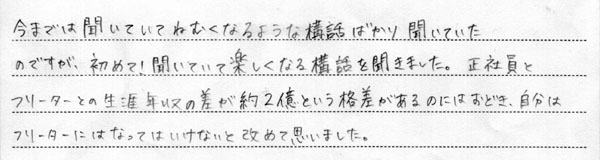 今までは聞いていてねむくなるような構話ばかり聞いていた
のですが、初めて!聞いていて楽しくなる構話を聞きました。正社員と
フリーターとの生涯年収の差が約2億という格差があるのにはおどき、自分は
フリーターにはなってはいけないと改めて思いました。